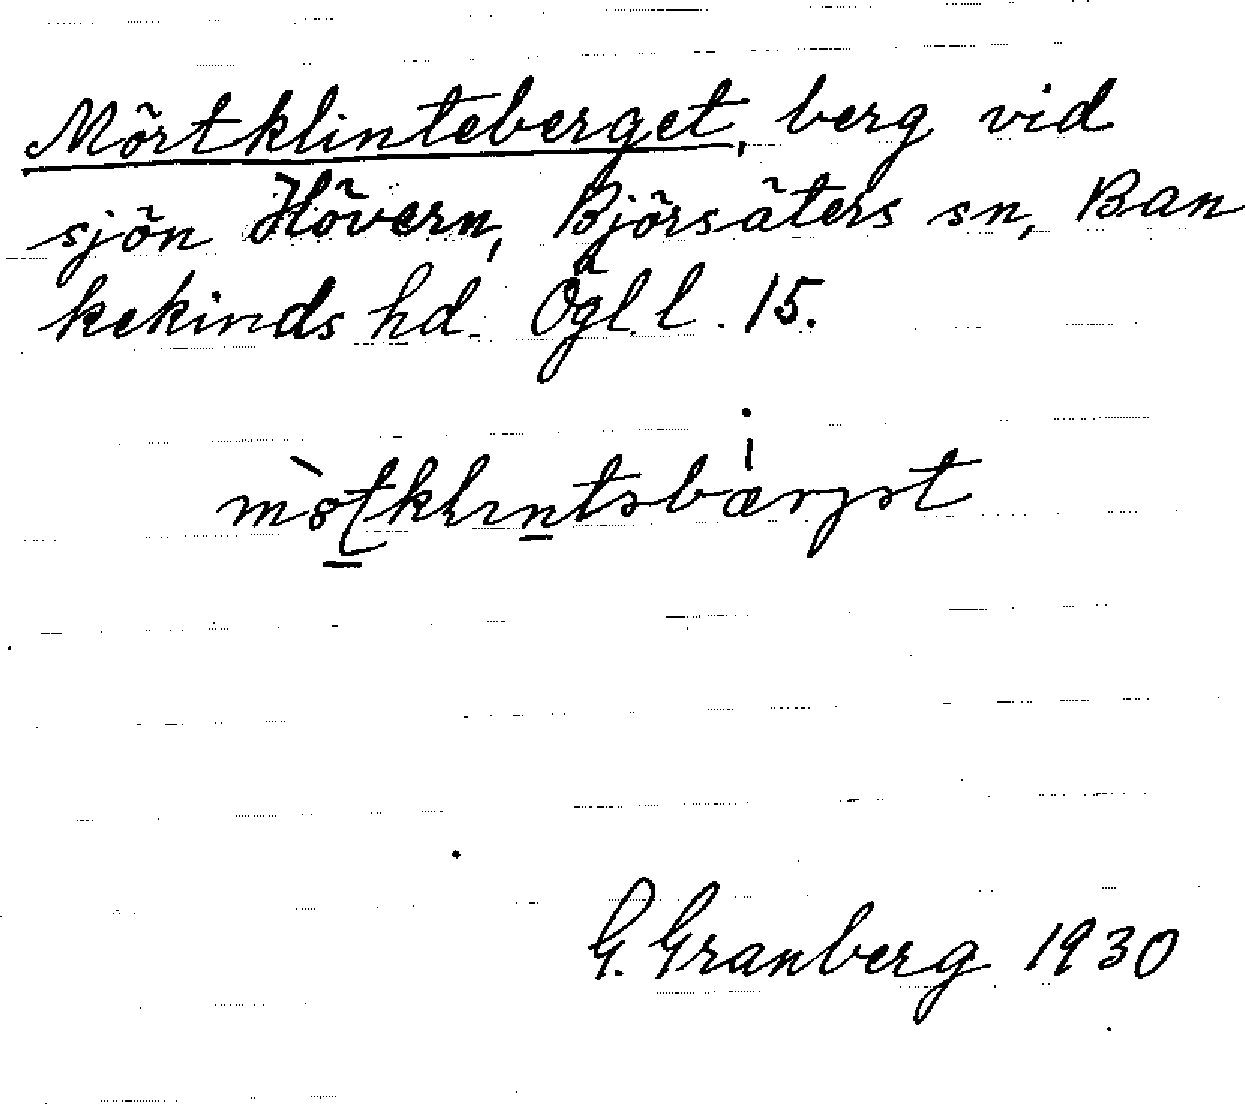 Mörtklinteberget, berg vid
sjön Hövern, Björsäters sn, Ban
kekinds hd. Ögl. l. 15.
G. Granberg 1930